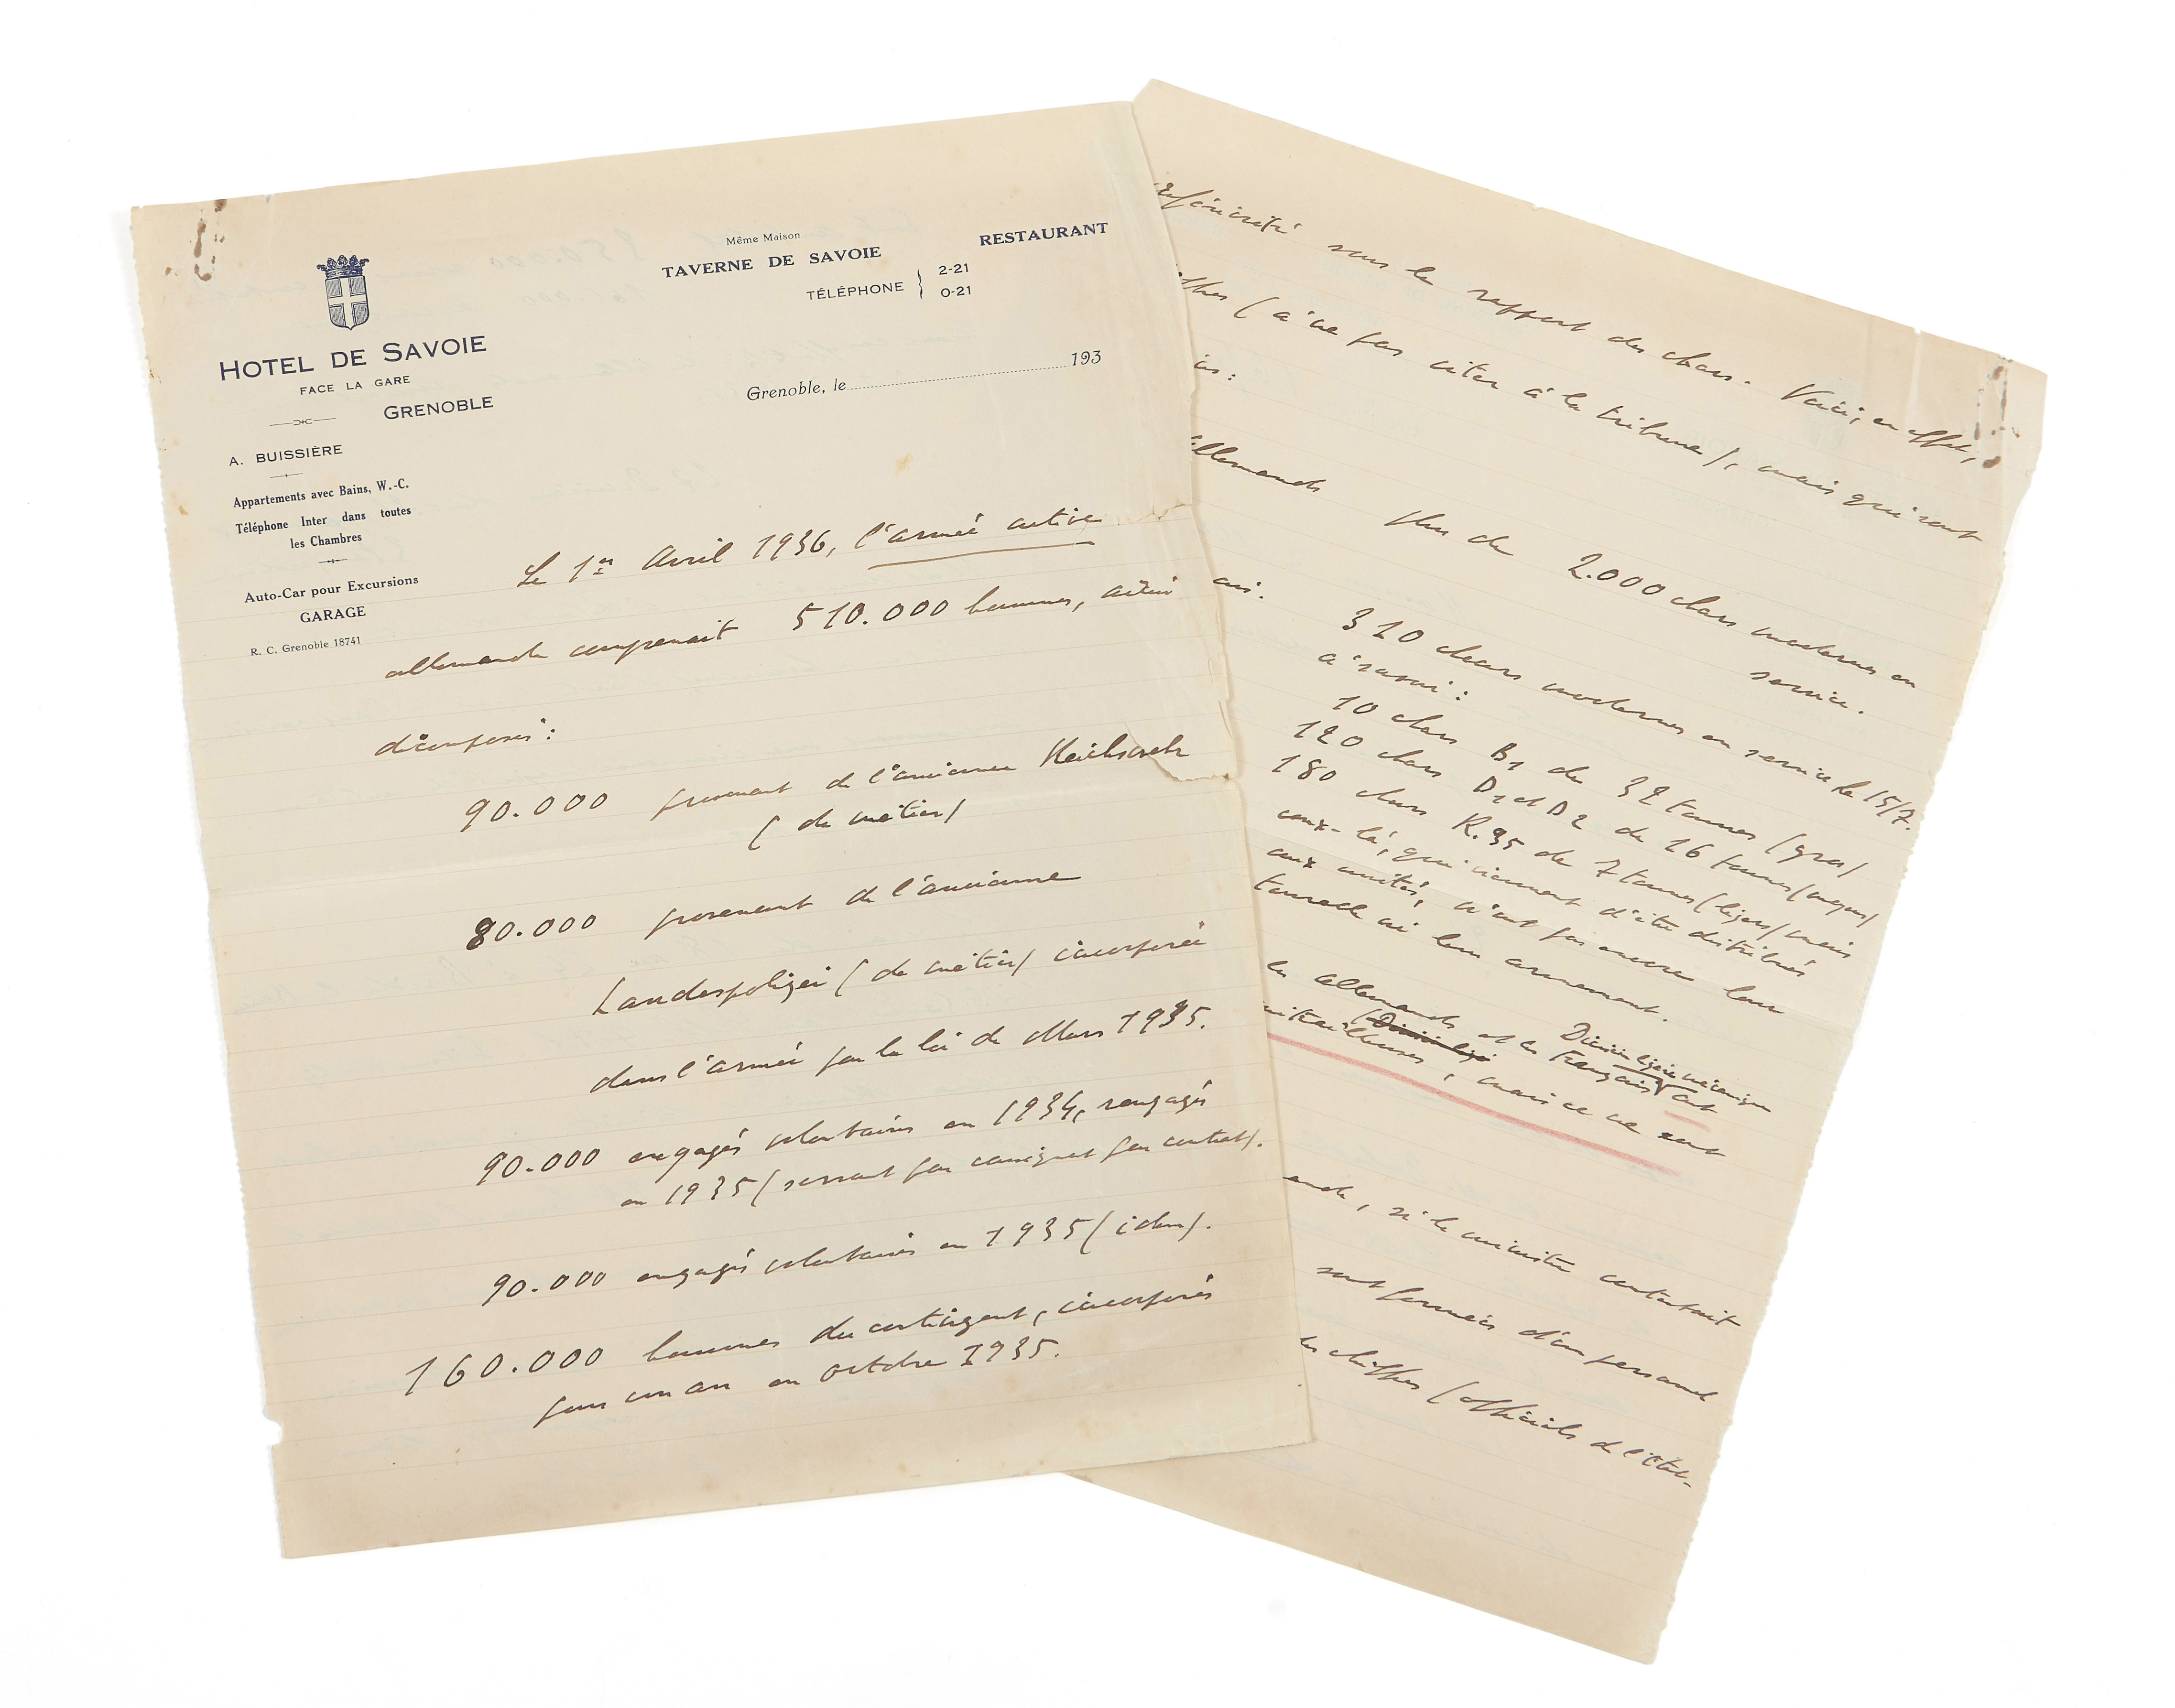 Même Maison
TAVERNE DE SAVOIE
RESTAURANT
TÉLÉPHONE 2-21
0-21
HOTEL DE SAVOIE
FACE LA GARE
GRENOBLE
Grenoble, le 193
A. BUISSIÈRE
Appartements avec Bains, W.-C.
Téléphone Inter dans toutes
les Chambres
Auto-Car pour Excursions
GARAGE
R. C. Grenoble 18741
Le 1er Avril 1936, l'armée active
allemande comprenait 510.000 hommes, ainsi
décomposés :
90.000 provenant de l'ancienne Reichswehr
(de métier)
80.000 provenant de l'ancienne
Landespolizei (de métier) incorporée
dans l'armée par la loi de Mars 1935.
90.000 engagés volontaires en 1934, rengagés
en 1935 (servant par contrat).
90.000 engagés volontaires en 1935 (idem).
160.000 hommes du contingent, incorporés
pour un an en octobre 1935.
infériorité sous le rapport des chars. Voici, en effet,
(à ne pas citer à la tribune), mais qui sont
allemands plus de 2.000 chars modernes en
service.
310 chars modernes en service le 15/7.
à savoir :
10 chars B1 de 32 tonnes (gros)
120 chars D1 et D2 de 16 tonnes (moyens)
180 chars R.35 de 7 tonnes (légers) mais
ceux-là, qui viennent d'être distribués
aux unités, n'ont pas encore leur
tourelle ni leur armement.
Division légère mécanique
les allemands et les français ont
mitrailleuses, mais ce ne sont
si le ministre contestait
sont formées d'un personnel
les chiffres (officiels de l'Etat-